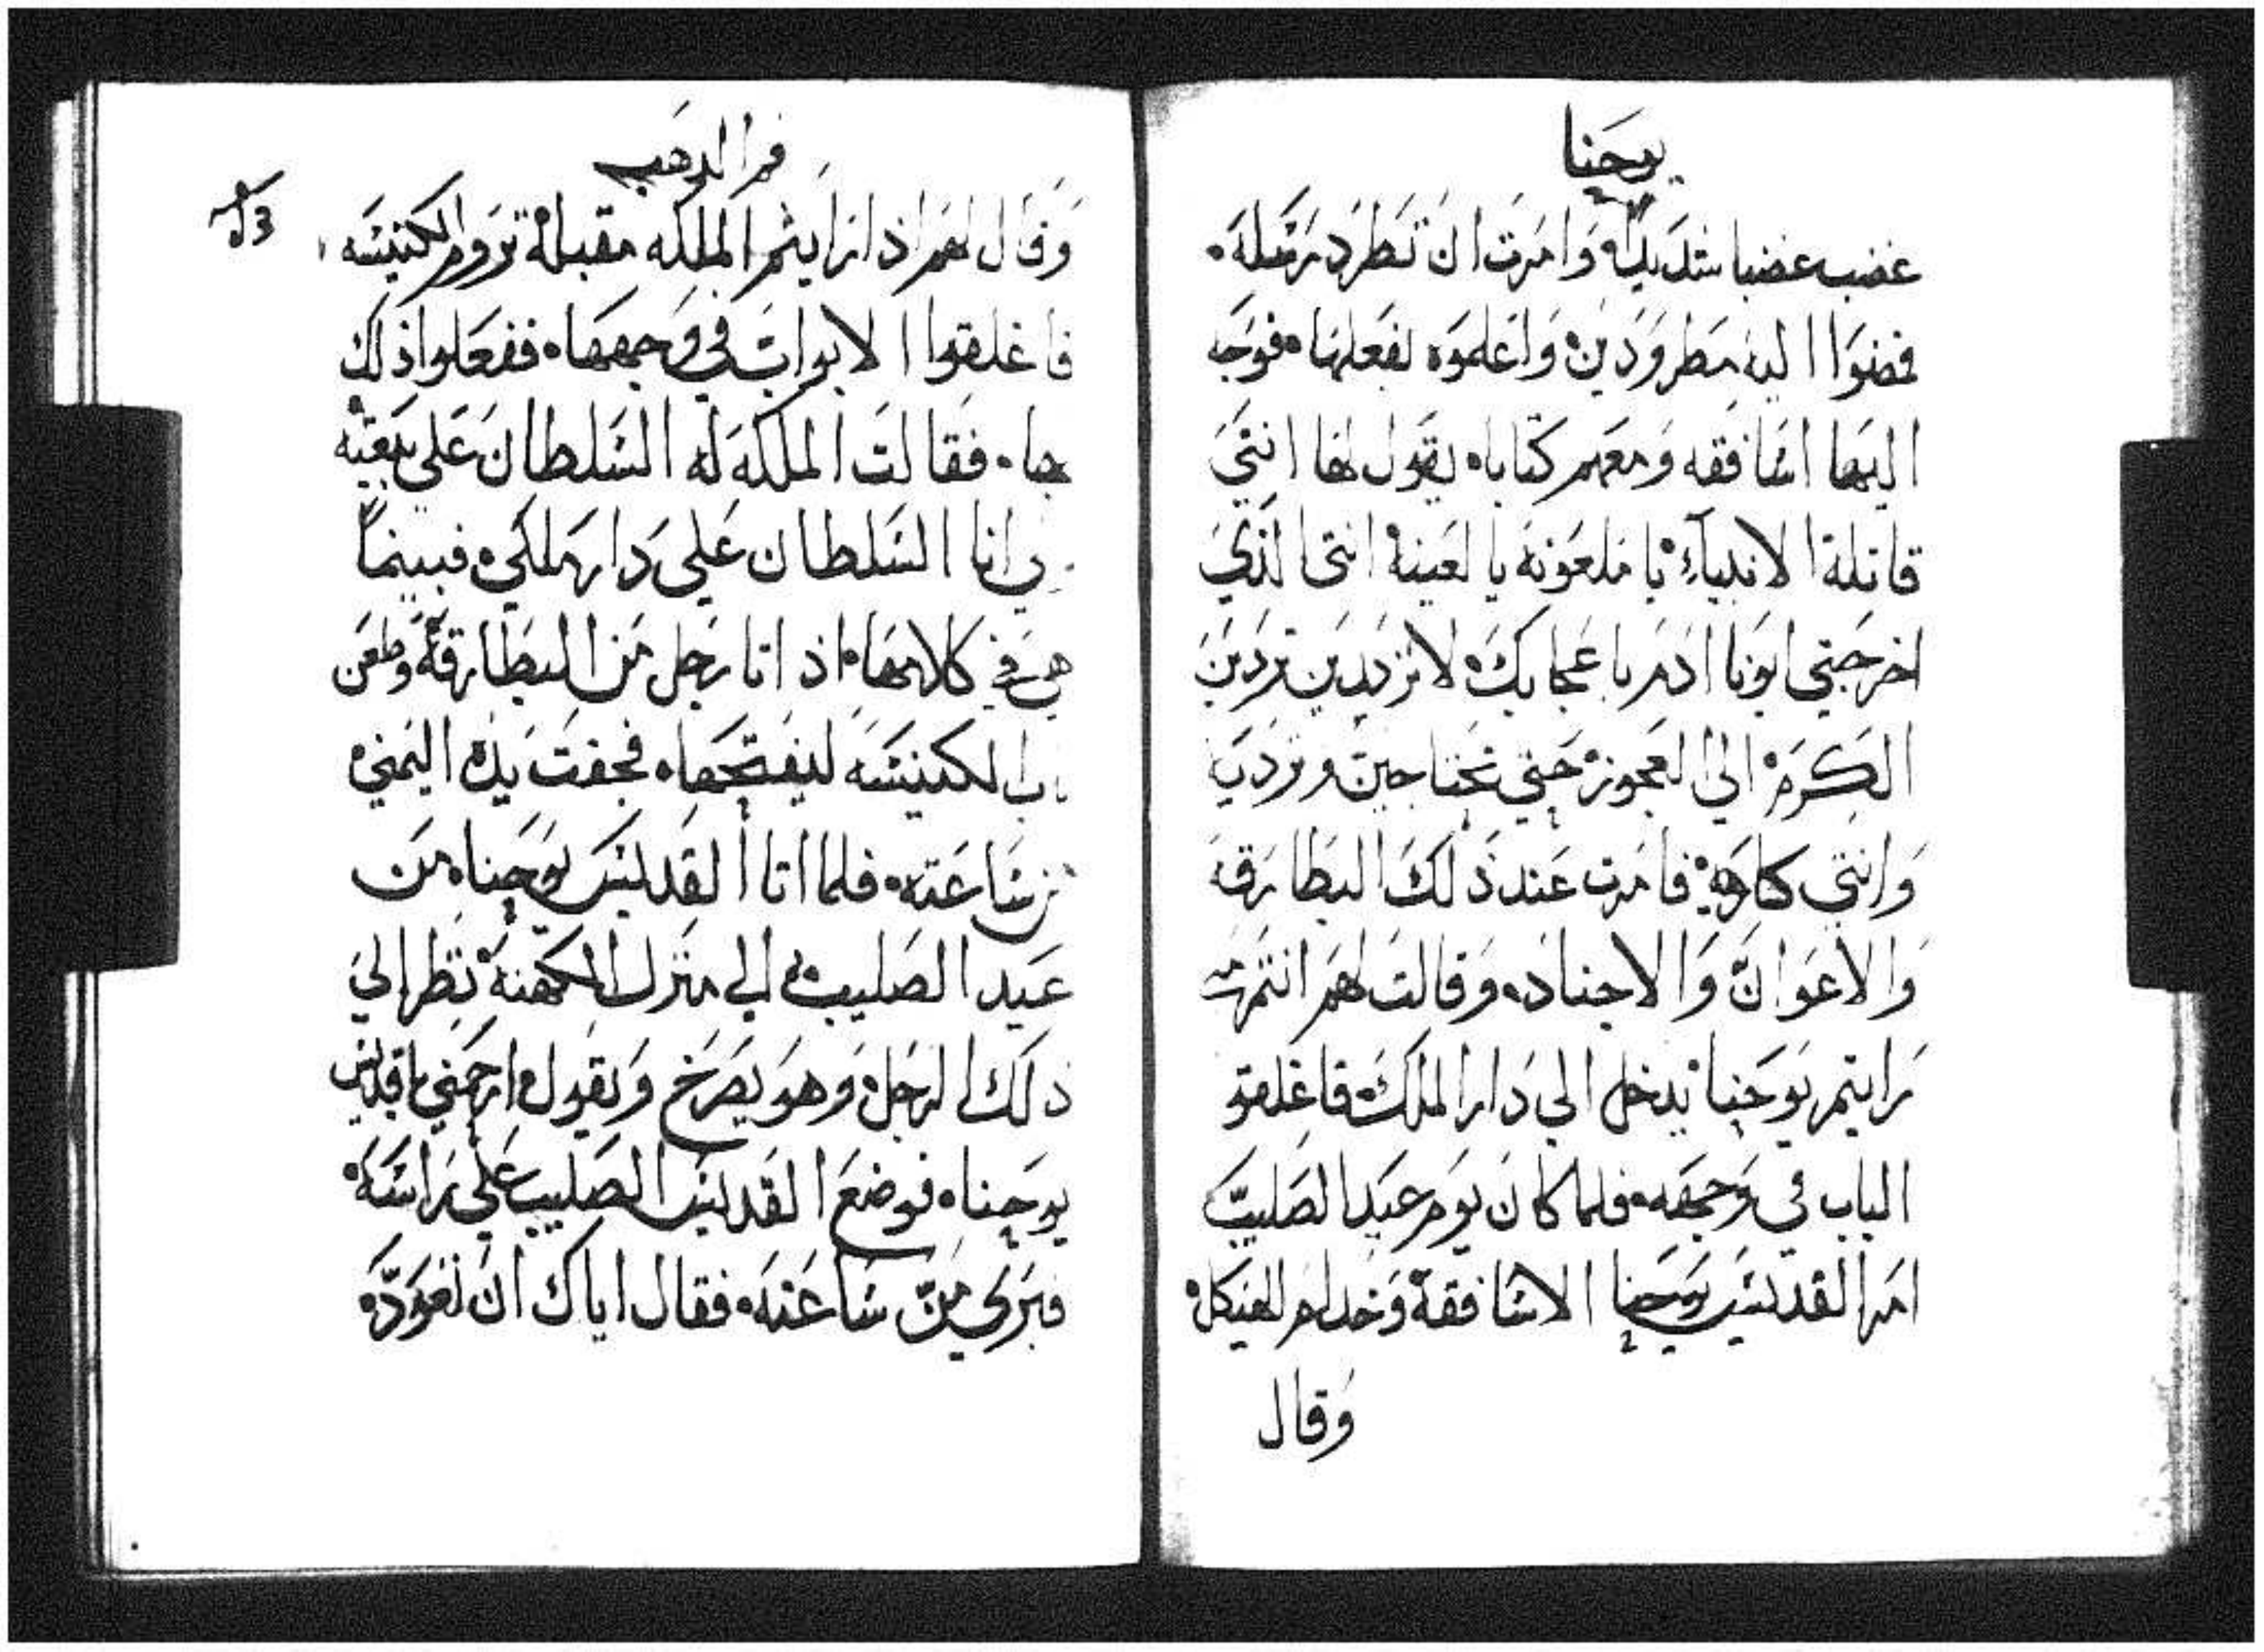 يوحنا
غضب غضبا شديدًا وامرت ان تطرد رسله
فمضوا اليه مطرودين واعلموه بفعلها فوجه
اليها اساقفه ومعهم كتابا يقول لها انتي
قاتلة الانبياء يا ملعونة يا لعينة انتى الذي
اخرجتي ابونا ادم باعجابك لا تزيدين تردين
الكرم الي العجوز حتي تحتاجين وتردي
وانتي كارهة فامرت عند ذلك البطارقة
والاعوان والاجناد وقالت لهم انتم
رايتم يوحنا يدخل الي دار الملك فاغلقو
الباب في وجهه فلما كان يوم عيد الصليب
امر القديس يوحنا الاساقفة وخدام الهيكل
وقال
فم الدهب
وقال لهم اذا رايتم الملكه مقبلة تروم الكنيسه
فاغلقوا الابواب في وجهها ففعلوا ذلك
فقالت الملكه له السلطان علي بيعته
انا السلطان علي دار ملكي فبينما
هي في كلامها اذ اتا رجل من البطارقة وطعن
باب الكنيسه ليفتحها فجفت يده اليمني
من ساعته فلما اتا القديس يوحنا من
عيد الصليب الي منزل الكهنة نظر الي
ذلك الرجل وهو يصرخ ويقول ارحمني يا قديس
يوحنا فوضع القديس الصليب علي راسه
فبري من ساعته فقال اياك ان تعود